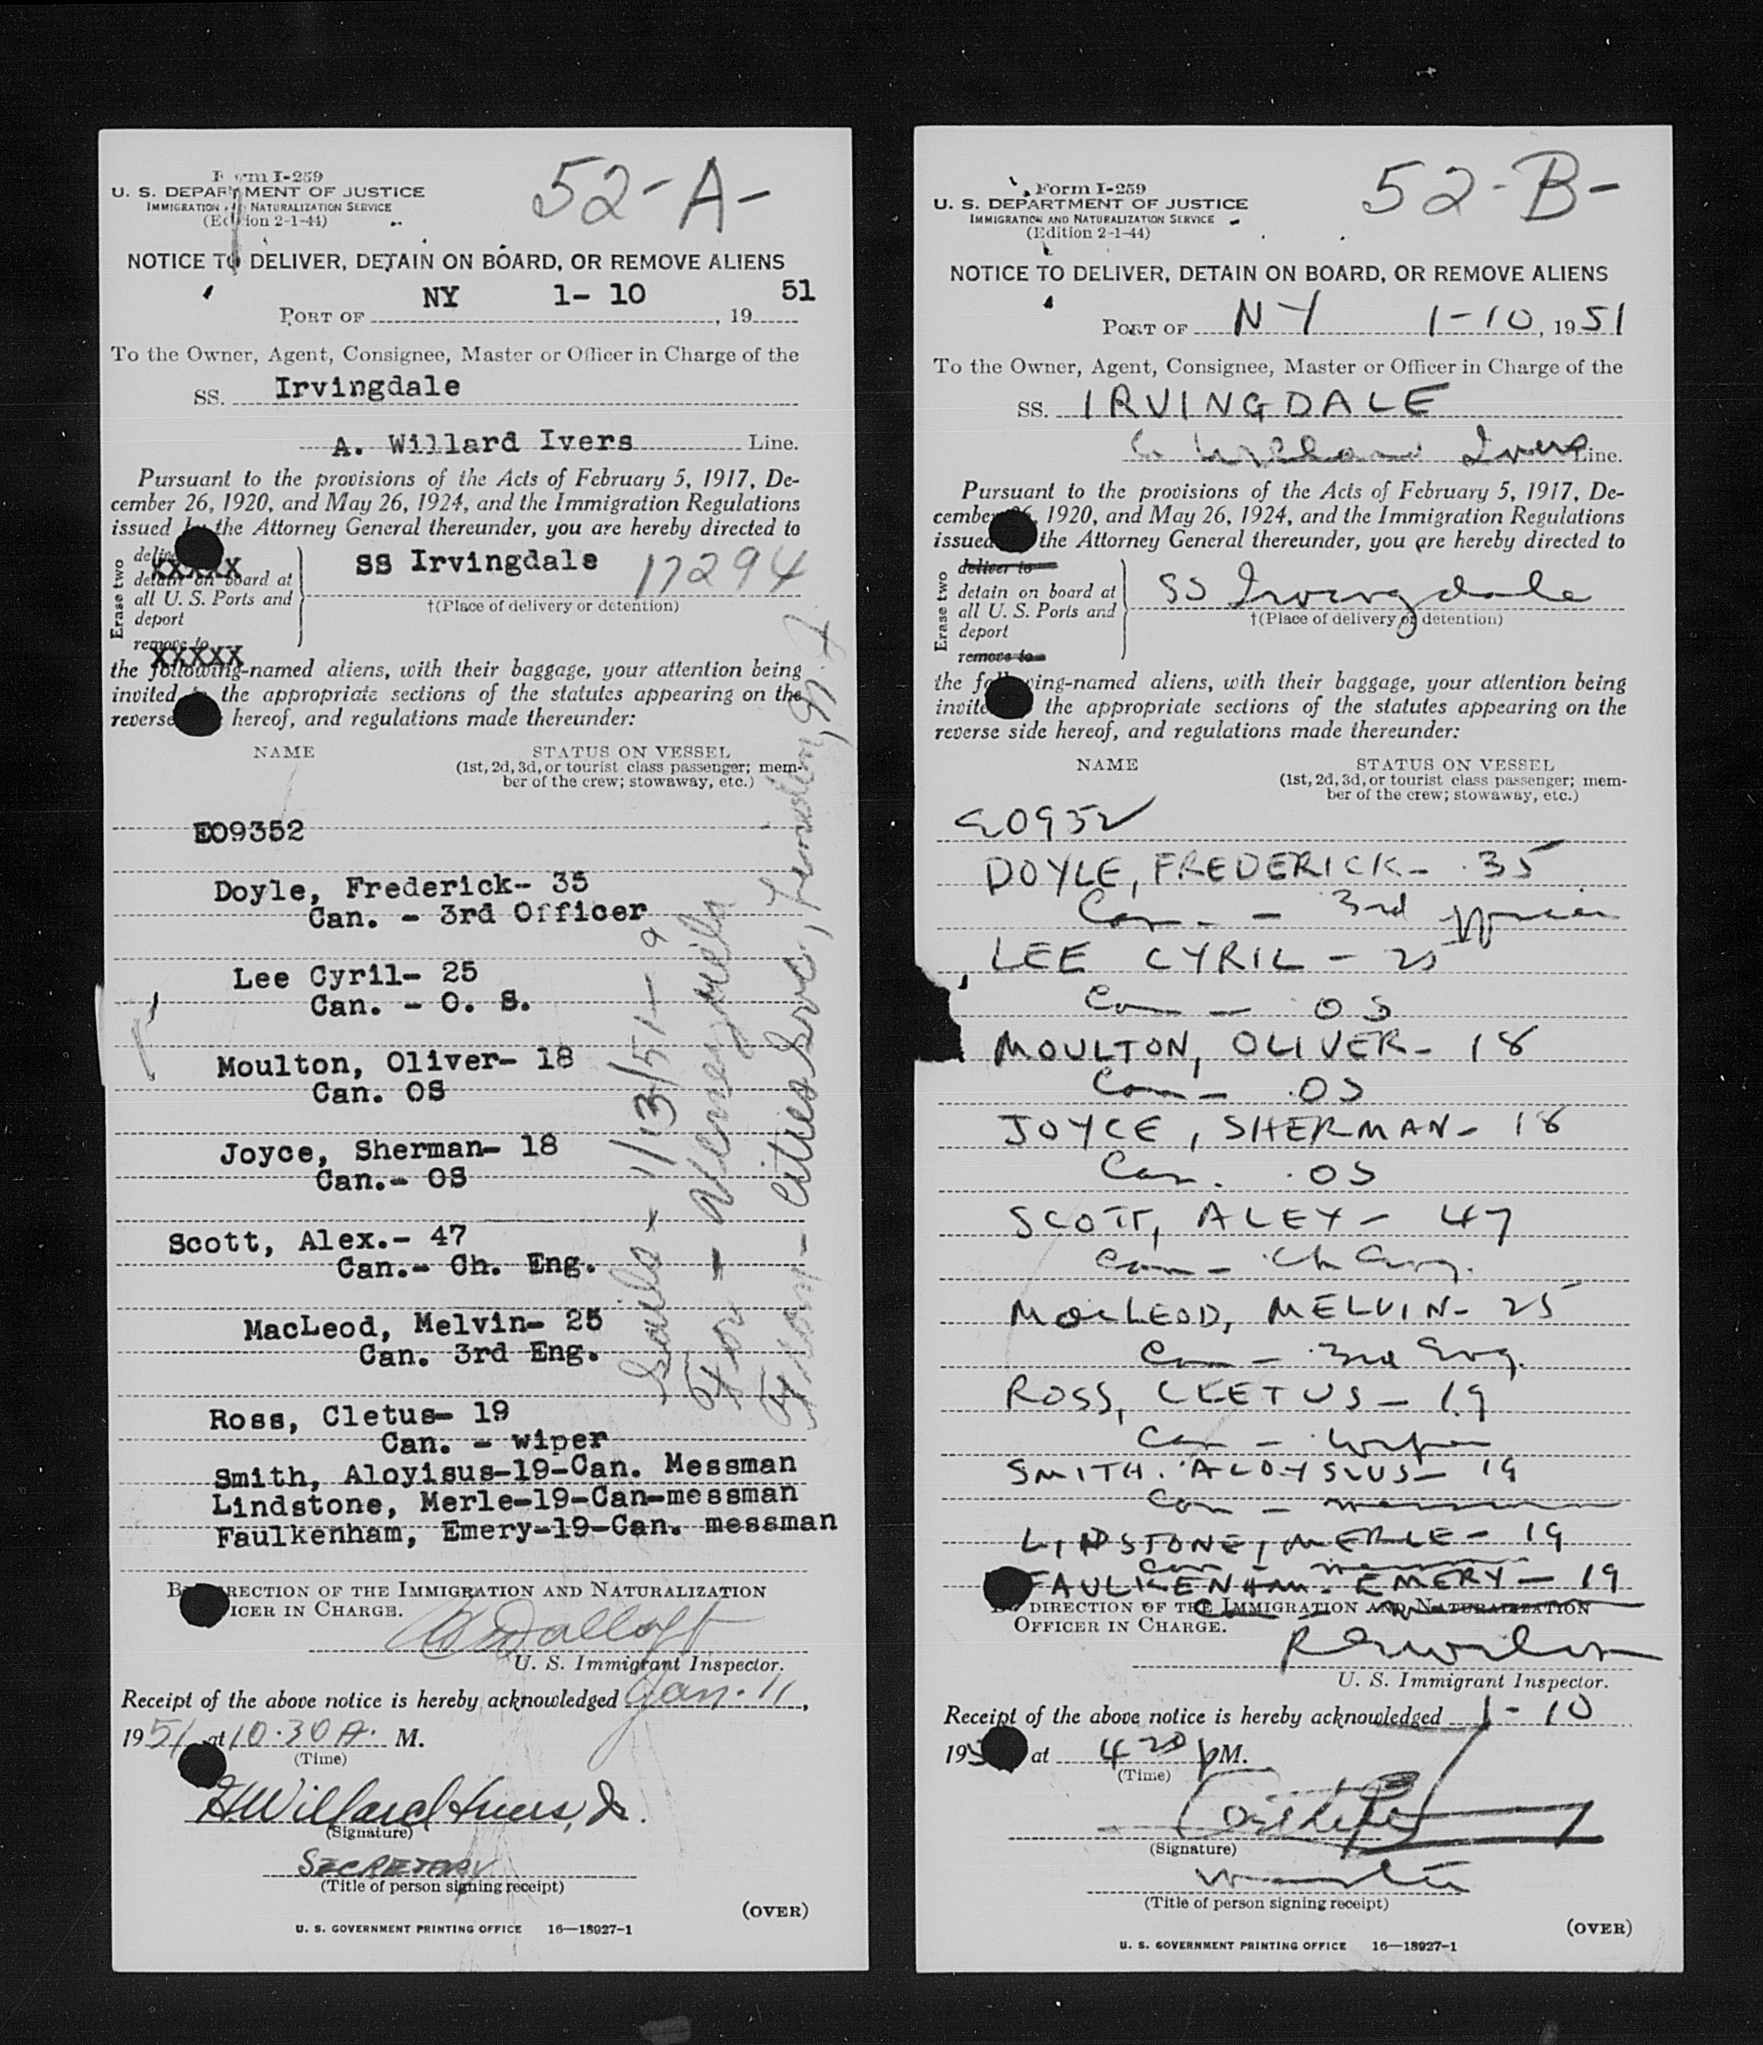 Form I-259
U. S. DEPARTMENT OF JUSTICE
IMMIGRATION AND NATURALIZATION SERVICE
(Edition 2-1-44)
52-A-
NOTICE TO DELIVER, DETAIN ON BOARD, OR REMOVE ALIENS
PORT OF NY 1- 10, 1951
To the Owner, Agent, Consignee, Master or Officer in Charge of the
SS. Irvingdale
A. Willard Ivers Line.
Pursuant to the provisions of the Acts of February 5, 1917, De-
cember 26, 1920, and May 26, 1924, and the Immigration Regulations
issued by the Attorney General thereunder, you are hereby directed to
Erase two
XXXXX
detain on board at
all U. S. Ports and
deport
remove to
XXXXX
SS Irvingdale 17294
†(Place of delivery or detention)
the following-named aliens, with their baggage, your attention being
invited to the appropriate sections of the statutes appearing on the
reverse hereof, and regulations made thereunder:
NAME STATUS ON VESSEL
(1st, 2d, 3d, or tourist class passenger; mem-
ber of the crew; stowaway, etc.)
E09352
Doyle, Frederick- 35
Can. - 3rd Officer
Lee Cyril- 25
Can. - O. S.
Moulton, Oliver- 18
Can. OS
Joyce, Sherman- 18
Can.- OS
Scott, Alex.- 47
Can.- Ch. Eng.
MacLeod, Melvin- 25
Can. 3rd Eng.
Ross, Cletus- 19
Can. - wiper
Smith, Aloyisus-19-Can. Messman
Lindstone, Merle-19-Can-messman
Faulkenham, Emery-19-Can. messman
Sails - 1/13/51 -
For - Venezuela
From - Cities Svc, Linden, N.J.
BY DIRECTION OF THE IMMIGRATION AND NATURALIZATION
OFFICER IN CHARGE.
U. S. Immigrant Inspector.
Receipt of the above notice is hereby acknowledged Jan. 11,
1951 at 10.30 A. M.
(Time)
Willard Ivers, Jr.
(Signature)
SECRETARY
(Title of person signing receipt)
(OVER)
U. S. GOVERNMENT PRINTING OFFICE 16—18927-1
Form I-259
U. S. DEPARTMENT OF JUSTICE
IMMIGRATION AND NATURALIZATION SERVICE
(Edition 2-1-44)
52-B-
NOTICE TO DELIVER, DETAIN ON BOARD, OR REMOVE ALIENS
PORT OF NY 1-10, 1951
To the Owner, Agent, Consignee, Master or Officer in Charge of the
SS. IRVINGDALE
Willard Ivers Line.
Pursuant to the provisions of the Acts of February 5, 1917, De-
cember 26, 1920, and May 26, 1924, and the Immigration Regulations
issued the Attorney General thereunder, you are hereby directed to
Erase two
deliver to
detain on board at
all U. S. Ports and
deport
remove to
SS Irvingdale
†(Place of delivery or detention)
the following-named aliens, with their baggage, your attention being
invited the appropriate sections of the statutes appearing on the
reverse side hereof, and regulations made thereunder:
NAME STATUS ON VESSEL
(1st, 2d, 3d, or tourist class passenger; mem-
ber of the crew; stowaway, etc.)
E0952
DOYLE, FREDERICK - 35
Can. - 3rd Officer
LEE CYRIL - 25
Can - OS
MOULTON, OLIVER - 18
Can - OS
JOYCE, SHERMAN - 18
Can. OS
SCOTT, ALEX - 47
Can - Ch Eng.
MacLEOD, MELVIN - 25
Can - 3rd Eng.
ROSS, CLETUS - 19
Can - Wiper
SMITH. ALOYSIUS - 19
Can - messman
LINDSTONE, MERLE - 19
Can - messman
FAULKENHAM. EMERY - 19
BY DIRECTION OF THE IMMIGRATION AND NATURALIZATION
OFFICER IN CHARGE.
U. S. Immigrant Inspector.
Receipt of the above notice is hereby acknowledged 1-10
195 at 4 20 PM.
(Time)
(Signature)
master
(Title of person signing receipt)
(OVER)
U. S. GOVERNMENT PRINTING OFFICE 16—18927-1